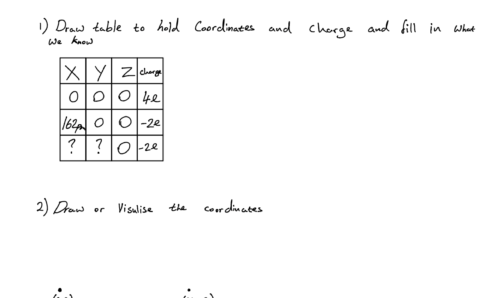 1) Draw table to hold Coordinates and Charge and fill in what
we know
X Y Z Charge
0 0 0 4e
162pm 0 0 -2e
? ? 0 -2e
2) Draw or Visulise the coordinates